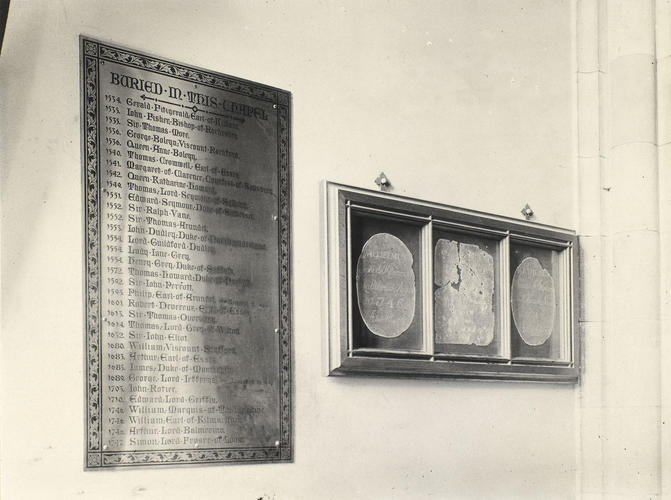 BURIED·IN·THIS·CHAPEL
1534. Gerald·Fitzgerald, Earl·of·Kildare.
1535. John·Fisher, Bishop·of·Rochester.
1535. Sir·Thomas·More.
1536. George·Boleyn, Viscount·Rochford.
1536. Queen·Anne·Boleyn.
1540. Thomas·Cromwell, Earl·of·Essex.
1541. Margaret·of·Clarence, Countess·of·Salisbury.
1542. Queen·Katharine·Howard.
1549. Thomas, Lord·Seymour·of·Sudeley.
1551. Edward·Seymour, Duke·of·Somerset.
1552. Sir·Ralph·Vane.
1552. Sir·Thomas·Arundel.
1553. John·Dudley, Duke·of·Northumberland.
1554. Lord·Guildford·Dudley.
1554. Lady·Jane·Grey.
1554. Henry·Grey, Duke·of·Suffolk.
1572. Thomas·Howard, Duke·of·Norfolk.
1592. Sir·John·Perrott.
1595. Philip, Earl·of·Arundel.
1601. Robert·Devereux, Earl·of·Essex.
1613. Sir·Thomas·Overbury.
1614. Thomas, Lord·Grey·of·Wilton.
1632. Sir·John·Eliot.
1680. William, Viscount·Stafford.
1683. Arthur, Earl·of·Essex.
1685. James, Duke·of·Monmouth.
1689. George, Lord·Jeffreys.
1703. John·Rotier.
1710. Edward, Lord·Griffin.
1746. William, Marquis·of·Tullibardine.
1746. William, Earl·of·Kilmarnock.
1746. Arthur, Lord·Balmerino.
1747. Simon, Lord·Fraser·of·Lovat.